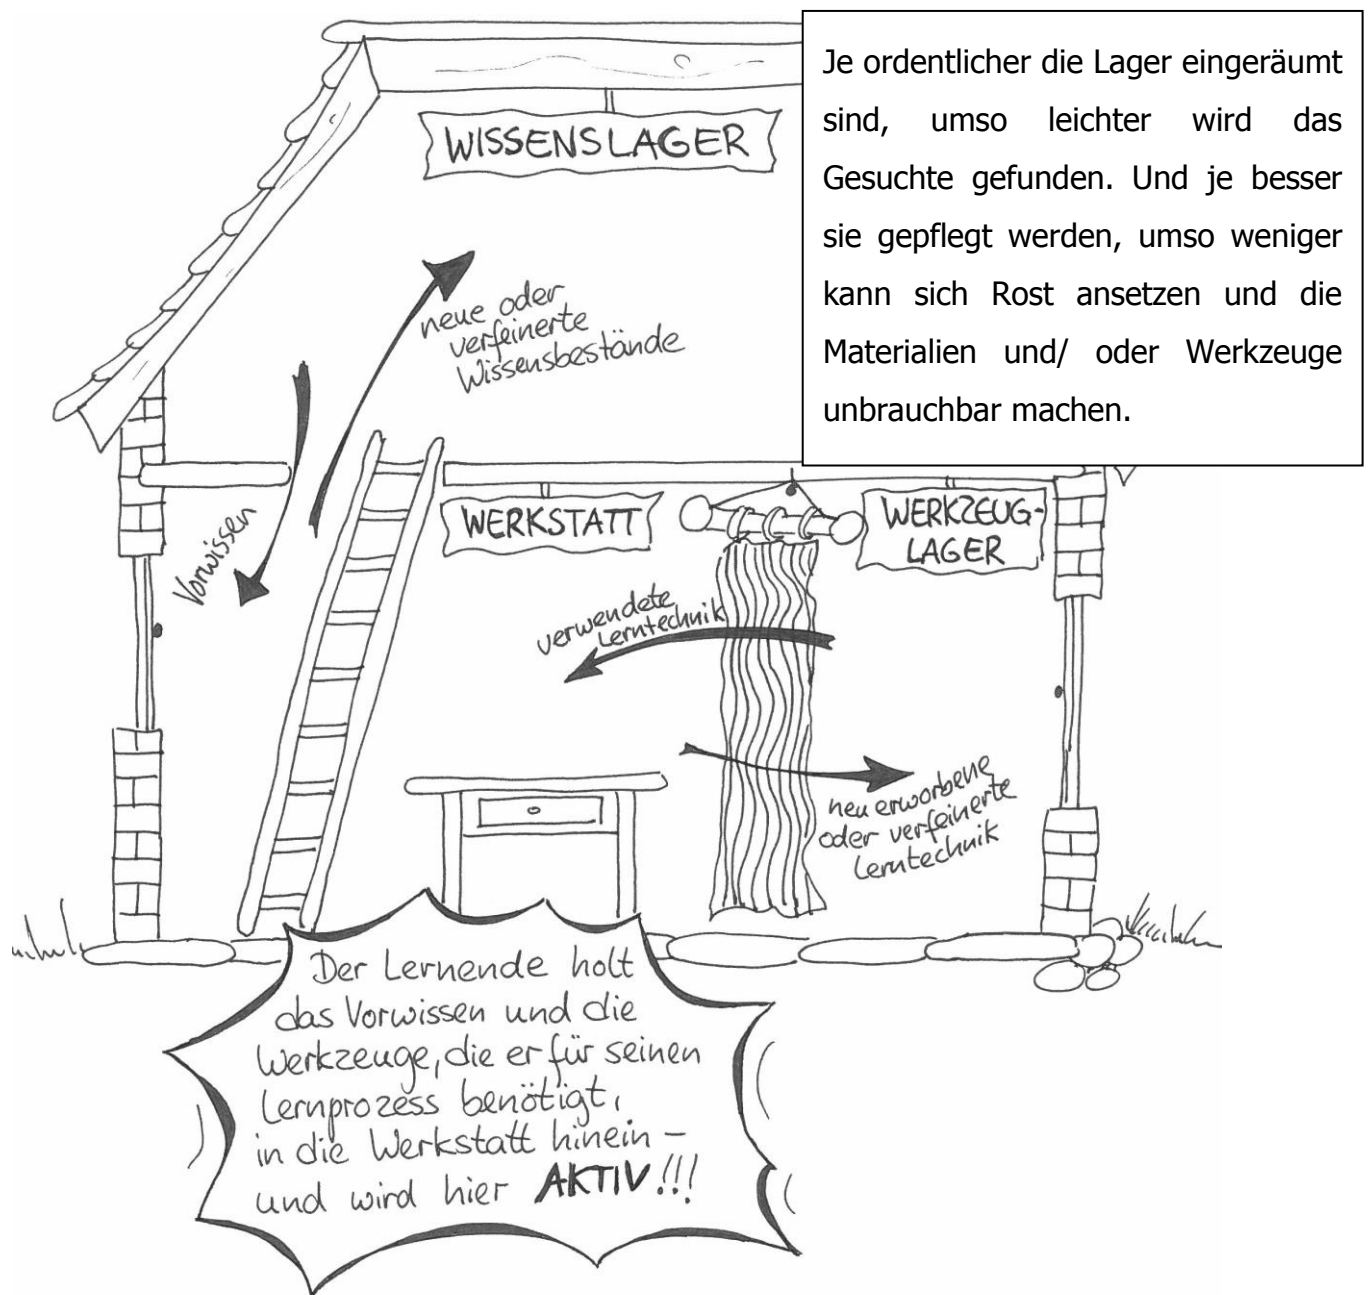 Je ordentlicher die Lager eingeräumt
sind, umso leichter wird das
Gesuchte gefunden. Und je besser
sie gepflegt werden, umso weniger
kann sich Rost ansetzen und die
Materialien und/ oder Werkzeuge
unbrauchbar machen.
WISSENSLAGER
neue oder
verfeinerte
Wissensbestände
Vorwissen
WERKSTATT
WERKZEUG-
LAGER
verwendete
Lerntechnik
neu erworbene
oder verfeinerte
Lerntechnik
Der Lernende holt
das Vorwissen und die
Werkzeuge, die er für seinen
Lernprozess benötigt,
in die Werkstatt hinein –
und wird hier AKTIV!!!